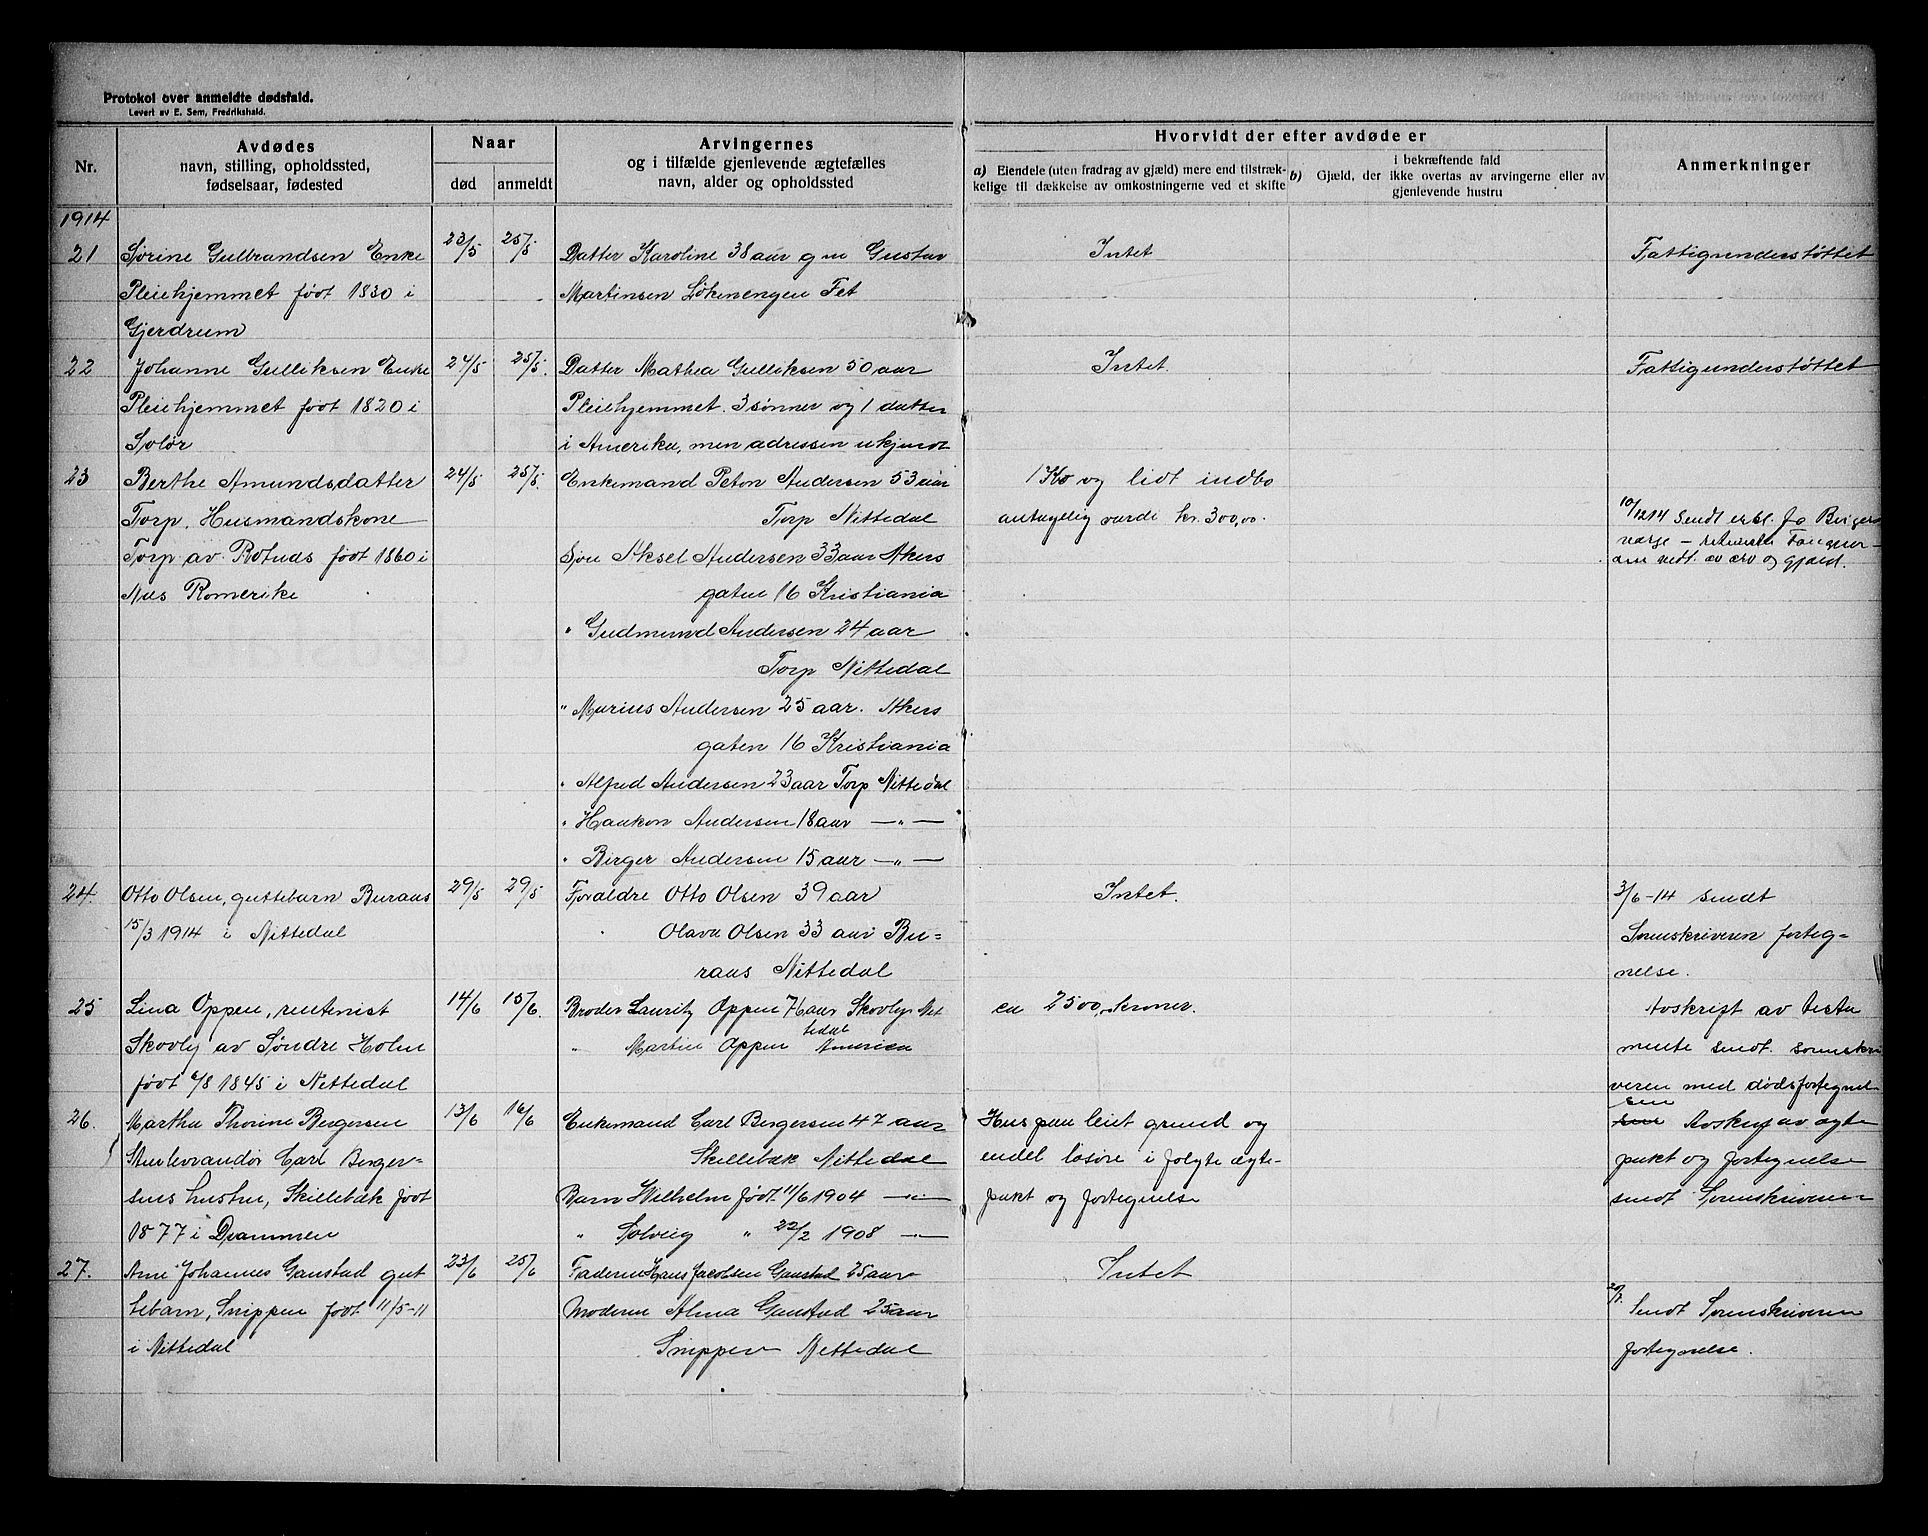 Protokol over anmeldte dødsfald.
Levert av E. Sem, Fredrikshald.
Nr.
Avdødes
navn, stilling, opholdssted,
fødselsaar, fødested
Naar
død
anmeldt
Arvingernes
og i tilfælde gjenlevende ægtefælles
navn, alder og opholdssted
Hvorvidt der efter avdøde er
a) Eiendele (uten fradrag av gjæld) mere end tilstræk-
kelige til dækkelse av omkostningerne ved et skifte
i bekræftende fald
b) Gjæld, der ikke overtas av arvingerne eller av
gjenlevende hustru
Anmerkninger
1914
21 Sørine Gulbrandsen Enke
Pleiehjemmet født 1830 i
Gjerdrum
23/5 25/5
Datter Karoline 38 aar g m Gustav
Martinsen Løkenengen Fet
Intet
Fattigunderstøttet
22 Johanne Gulliksen Enke
Pleiehjemmet født 1820 i
Solør
24/5 25/5.
Datter Mathea Gulliksen 50 aar
Pleiehjemmet. 3 sønner og 1 datter
i Amerika, men adressen ukjendt
Intet.
Fattigunderstøttet
23 Berthe Amundsdatter
Torp, Husmandskone
Torp av Rotnds født 1860 i
Nes Romerike
24/5 25/5.
Enkemand Andersen 53 aar
Torp Nittedal
Søn Aksel Andersen 33 aar Akers
gaten 16 Kristiania
" Gudmund Andersen 24 aar
Torp Nittedal
" Marius Andersen 25 aar. Akers
gaten 16 Kristiania
" Alfred Andersen 23 aar Torp Nittedal
" Haakon Andersen 18 aar — " —
" Birger Andersen 15 aar — " —
1 Ko og lidt indbo
antagelig værdi kr. 300,00.
10/12 14 Sendt erkl. fra Birgers
verge —
av arv og gjæld.
24. Otto Olsen, guttebarn Buraas
15/3 1914 i Nittedal
29/5 29/5
Forældre Otto Olsen 39 aar
Olava Olsen 33 aar Bu-
raas Nittedal
Intet.
3/6-14 sendt
Sorenskriveren forteg-
nelse.
25 Lina Oppen, rentenist
Skovly av Søndre Holm
født 6/8 1845 i Nittedal
14/6 15/6.
Broder Lauritz Oppen 71 aar Skovly Nit
tedal
" Martin Oppen Amerika
ca 2500,- kroner.
Avskrift av testa
mente sendt sorenskri
veren med dødsfortegnel-
sen
26. Martha Thorine Bergersen
Stenhrandør Carl Berger-
sens hustru, Skillebæk født
1877 i Drammen
13/6 16/6
Enkemand Carl Bergersen 47 aar
Skillebæk Nittedal
Barn Wilhelm født 11/6 1904 — " —
" Solveig " 22/2 1908 — " —
Hus paa leiet grund og
endel løsøre i følge ægte-
pakt og fortegnelse
Avskrift av ægte
pakt og fortegnelse
sendt Sorenskriveren
27. Arne Johannes Ganstad gut
tebarn, Snippen født 11/5-11
i Nittedal
23/6 25/6
Faderen Hans Jacobsen Ganstad 25 aar
Moderen Alma Ganstad 25 aar
Snippen Nittedal
Intet
20/7 Sendt Sorenskriveren
fortegnelse.